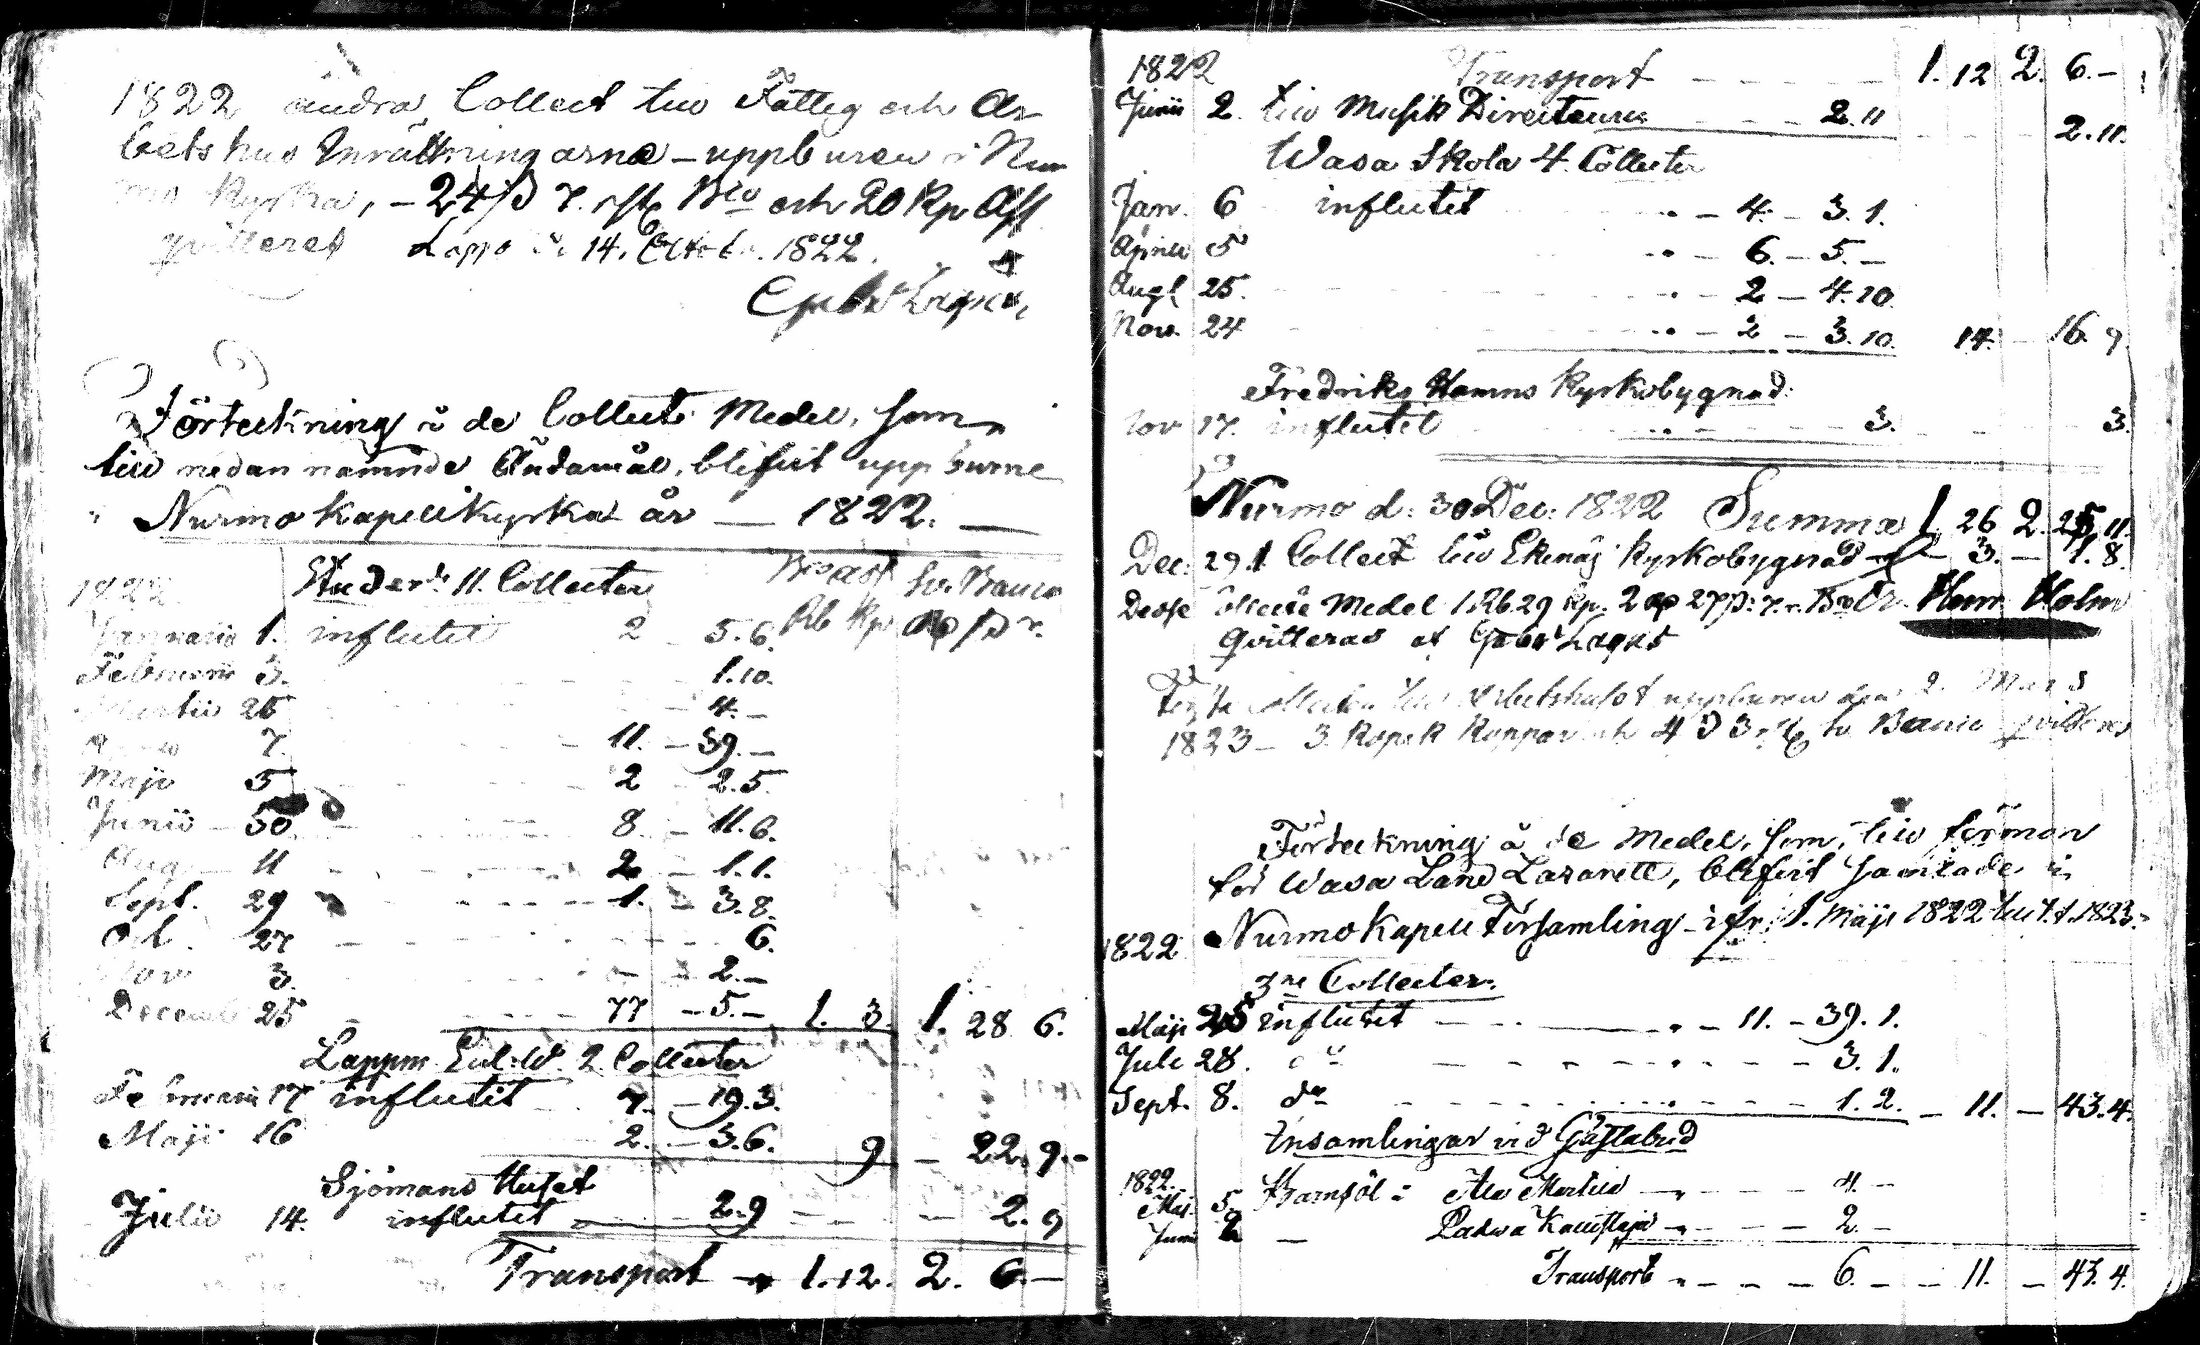 1822 andra Collect till Fattig och Ar
betshus Inrättningarne - uppburen i Nur
mo Kyrka, - 24 ß 7. rst. Bco och 20 Kp Ass
qvitteret Lappo d. 14. Octob. 1822.
Gabr Lagus
Förteckning å de Collect Medel, som
till nedan nämnde Ändamål, blifvit uppburne
i Nurmo Kapellkyrka år - 1822. -
1822. Studer. 11. Collecter Bco Ass Sv. Banco
Januarii 1. influtit 2 - 5.6. Rb Kp Rd ß r.
Februarii 3. - - - 1.10.
Martii 25 - - - 4. -
7. - 11. - 39. -
Maji 5 - - 2 - 2.5.
Junii - 30 - - 8. - 11.6.
Aug - 11 - - 2 - 1.1.
Sept. 29 - - - 1. - 3.8.
Oct. 27 - - - 6.
Nov 3. - - 2. -
December 25 - - - 77 - 5. - 1. 3. 1. 28 6.
Lappm. Eul. W. 2 Collecter
Februarii 17 influtit - 7. - 19.3.
Maji 16 2. - 3.6. 9 - 22. 9. -
Sjömans Huset
Julii 14. influtit - 2.9 - - - 2. 9
Transport - 1. 12. 2. 6. -
1822 Transport - - - - 1. 12 2. 6. -
Junii 2. till Musik Directeuren - - - 2.11 - - - 2.11.
Wasa Skola 4. Collecter
Jan. 6 influtit - 4. - 3. 1.
Aprill 5 - 6. - 5. -
Augl 25. - - - 2 - 4.10.
Nov. 24 - - - 2 - 3.10. 14. - 16. 9.
Fredriks Hamns Kyrkobygnad.
Nov 17. influtit - - - 3. - - - 3.
Nurmo d. 30 Dec. 1822 Summa 1. 26 2. 25 11.
Dec. 29. 1 Collect till Ekenäs Kyrkobygnad - 3. - 1. 8.
Desse Collecte Medel 1 Rb 29 Kp. 2 Rd 27 ß. 7 r. Bco Henr Holm
qvitteras af Gabr Lagus
Collecten till Arbetshuset uppburen den 2. Mars
1823 - 3. Kopek Koppar och 4 ß 3 rst. Sv. Banco qvitteras
Förteckning å de Medel, som, till förmon
för Wasa Land Lazarett, blifvit samlade i
Nurmo Kapell Församling - ifr. 1. Maji 1822 till 1823.
1822
3ne Collecter.
Maji 25 influtit - - - 11. - 39. 1.
Julii 28. do - - - 3. 1.
Sept. 8. do - - - 1. 2. - 11. - 43.4.
Insamlingar vid Gästabud
1822.
Maj. 5. Barnsöl: - - - 4. -
Juni 2 - - - 2. -
Transport - - - 6. - 11. - 43. 4.